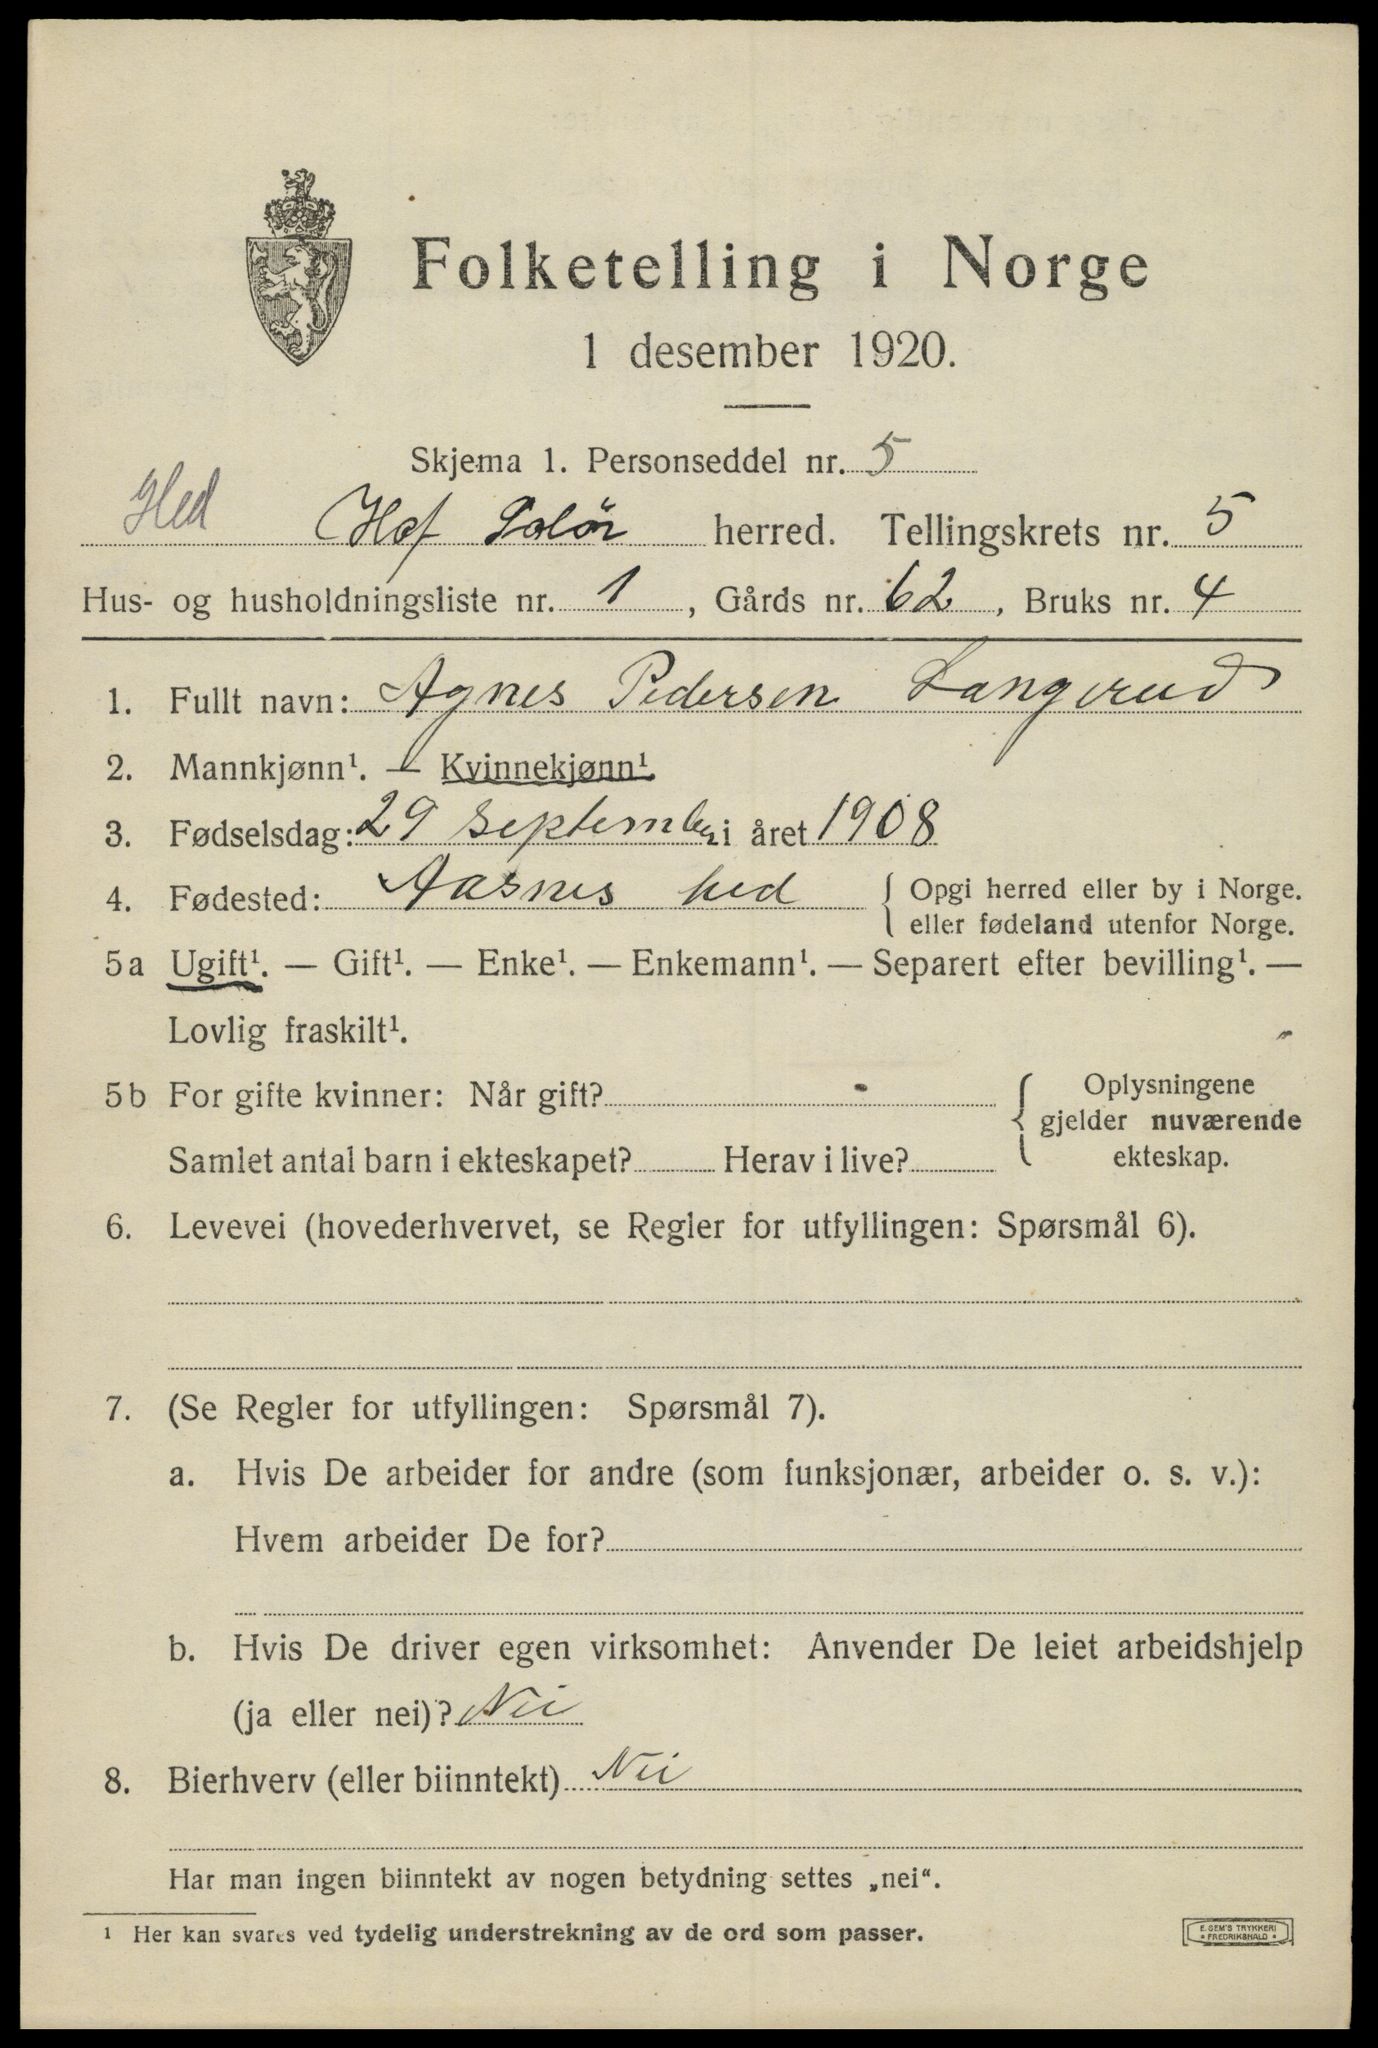 Folketelling i Norge
1 desember 1920.
Skjema 1. Personseddel nr. 5
Hed Hof Solör herred. Tellingskrets nr. 5
Hus- og husholdningsliste nr. 1, Gårds nr. 62, Bruks nr. 4
1. Fullt navn: Agnes Pedersen Langerud
2. Mannkjønn¹. — Kvinnekjønn¹.
3. Fødselsdag: 29 September i året 1908
4. Fødested: Aasnes hed { Opgi herred eller by i Norge.
eller fødeland utenfor Norge.
5a Ugift¹. — Gift¹. — Enke¹. — Enkemann¹. — Separert efter bevilling¹. —
Lovlig fraskilt¹.
5b For gifte kvinner: Når gift? - { Oplysningene
gjelder nuværende
Samlet antal barn i ekteskapet? Herav i live? ekteskap.
6. Levevei (hovederhvervet, se Regler for utfyllingen: Spørsmål 6).
7. (Se Regler for utfyllingen: Spørsmål 7).
a. Hvis De arbeider for andre (som funksjonær, arbeider o. s. v.):
Hvem arbeider De for?
b. Hvis De driver egen virksomhet: Anvender De leiet arbeidshjelp
(ja eller nei)? Nei
8. Bierhverv (eller biinntekt) Nei
Har man ingen biinntekt av nogen betydning settes „nei“.
¹ Her kan svares ved tydelig understrekning av de ord som passer.
E. SEM'S TRYKKERI
FREDRIKSHALD